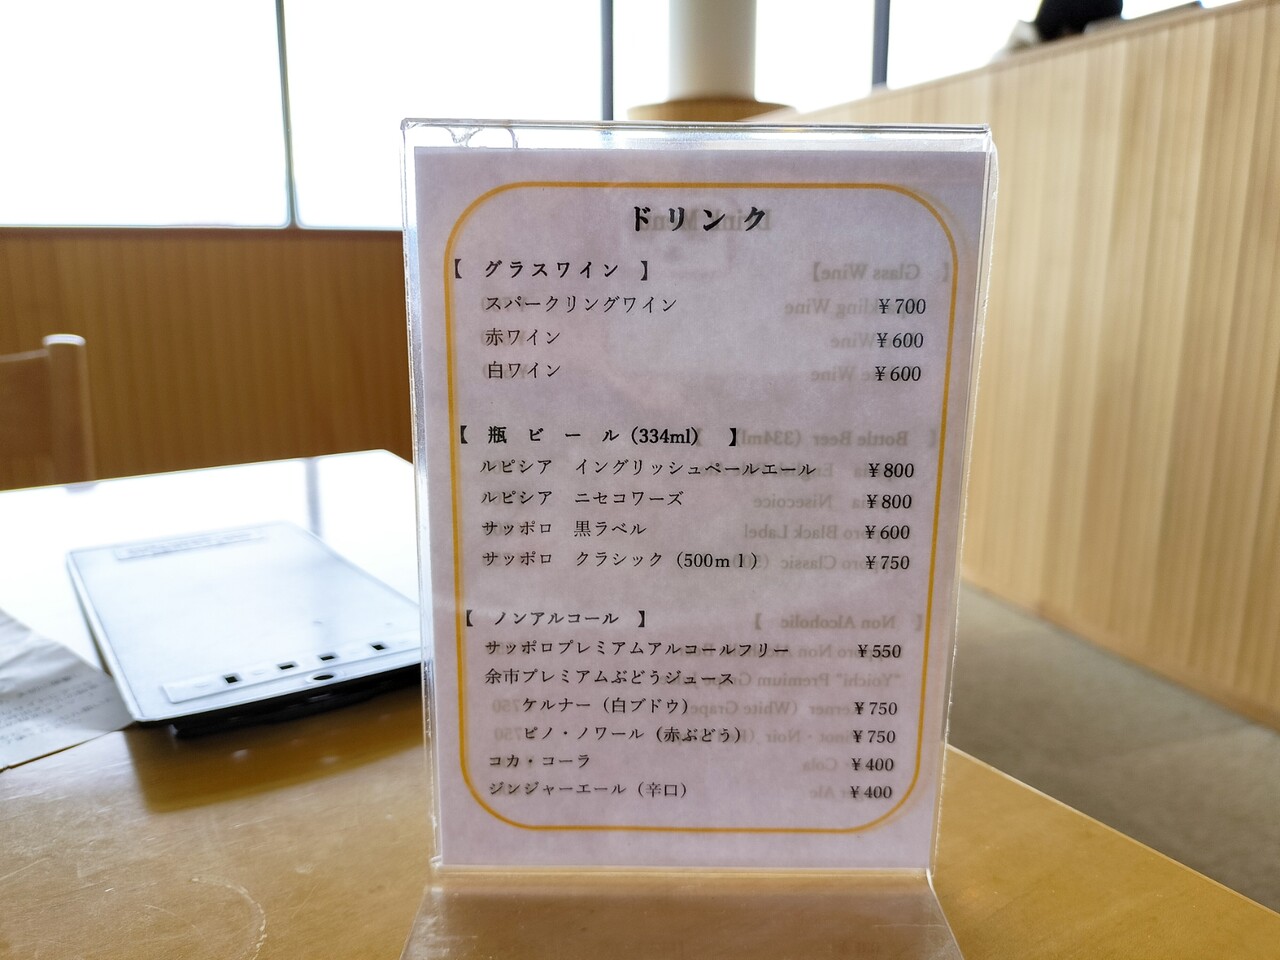 ドリンク
【 グラスワイン 】
スパークリングワイン ￥700
赤ワイン ￥600
白ワイン ￥600
【 瓶 ビ ー ル（334ml） 】
ルピシア イングリッシュペールエール ￥800
ルピシア ニセコワーズ ￥800
サッポロ 黒ラベル ￥600
サッポロ クラシック（500ｍｌ） ￥750
【 ノンアルコール 】
サッポロプレミアムアルコールフリー ￥550
余市プレミアムぶどうジュース
ケルナー（白ブドウ） ￥750
ピノ・ノワール（赤ぶどう） ￥750
コカ・コーラ ￥400
ジンジャーエール（辛口） ￥400